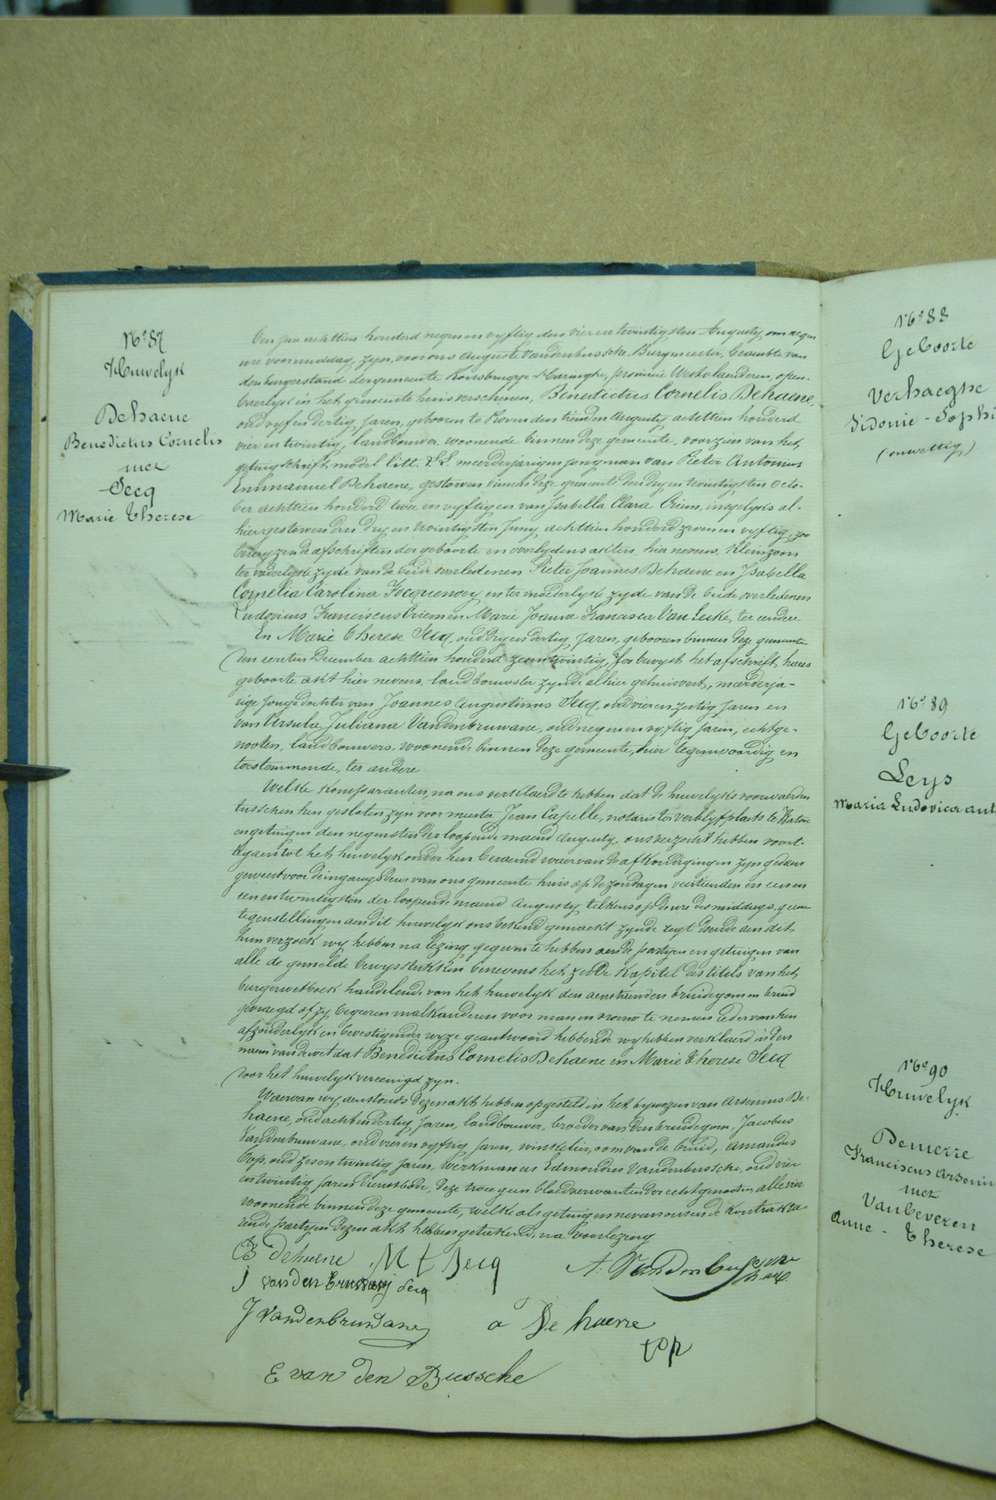 N° 87
Huwelyk
Dehaene
Benedictus Cornelis
met
Secq
Marie Therese
Den jaer achttien honderd negen en vyftig den vier en twintigsten Augusty, om negen
ure voormiddag, zyn, voor ons Auguste Vandenbussche Burgmeester, beambte van
den burgerstand der gemeente Roesbrugge-Haringhe, provincie Westvlaenderen, open-
baerlyk in het gemeente huis verschenen, Benedictus Cornelis Dehaene,
oud vyf en dertig jaren, geboren te den Augusty achttien honderd
vier en twintig, landbouwer, woonende binnen deze gemeente, voorzien van het
getuigschrift, model litt. meerderjarigen jongman van Pieter Antonius
Emmanuel Dehaene, gestorven binnen deze gemeente den dry en twintigsten Octo-
ber achttien honderd twee en vyftig en van Isabella Clara insgelyks al-
hier gestorven den dry en twintigsten Juny achttien honderd zeven en vyftig, zoo
bewyzen de afschriften der geboorte en overlydens akten hier nevens, Kleinzoon
ter vaderlyke zyde van de beide overledenen Pieter Joannes Dehaene en Isabella
Cornelia Carolina en ter moederlyke zyde van de beide overledenen
Ludovicus Franciscus en Marie Joanna Francisca Van ter eendre
En Marie Therese Secq, oud dry en dertig jaren, geboren binnen deze gemeente
den eersten December achttien honderd twintig, zoo bewyst het afschrift, harer
geboorte akt hier nevens, landbouwster zynde alhier gehuisvest, meerderja-
rige jonge dochter van Joannes Augustinus Secq, oud vier en zestig jaren en
van Ursula Juliana Vandenbruwane, oud negen en vyftig jaren, echtge-
nooten, landbouwers, woonende binnen deze gemeente, hier tegenwoordig en
toestemmende, ter andere.
Welke komparanten, na ons verklaerd te hebben dat de huwelyks voorwaerden
tusschen hun gesloten zyn voor meester Jean Capelle, notaris ter verblyfplaets te Watou
en getuigen den negensten der loopende maend Augusty, ons verzocht hebben voort-
te gaen tot het huwelyk onder hun beraemd waervan de afkondigingen zyn gedaen
geweest voor de ingang deur van ons gemeente huis op de zondagen veertienden en een en
een en twintigsten der loopende maend Augusty telkens op de ure des middags, geene
tegenstellingen aen dit huwelyk ons bekend gemaekt zynde
hun verzoek wy hebben na lezing gegeven te hebben aen de partyen en getuigen van
alle de gemelde bewysstukken benevens het zesde kapitel des titels van het
burgerwetboek handelende van het huwelyk den aenstaenden bruidegom en bruid
gevraegd of zy begeeren malkanderen voor man en vrouw te nemen, ieder van hen
afzonderlyk en bevestigender wyze geantwoord hebbende wy hebben verklaerd in den
naem van de wet dat Benedictus Cornelis Dehaene en Marie Therese Secq
voor het huwelyk vereenigd zyn.
Waervan wy aenstonds dezen akt hebben opgesteld in het bywezen van Arsenius De-
haene, oud acht en dertig jaren, landbouwer, broeder van den bruidegom, Jacobus
Vandenbruwane, oud vier en vyftig jaren, winkelier, oom van de bruid, Amandus
Top, oud zes en twintig jaren, werkman en Edmondus Vandenbussche, oud vier
en twintig jaren dienstbode, deze twee geen bloedverwanten der echtgenooten, alle vier
woonende binnen deze gemeente, welke als getuigen nevens ons en de kontrakte-
rende partyen dezen akt hebben geteekend, na voorlezing
B Dehaene M t Secq A. Vandenbussche
J vandenbruwany Secq
J Vandenbruwane a De haene
top
E van den Bussche
N° 88
Geboorte
Verhaeghe
Sidonie-Sophi
(onwettig)
N° 89
Geboorte
Leys
Maria Ludovica ant
N° 90
Huwelyk
Demerre
Franciscus Arseniu
met
Vanbeveren
Anne-Therese